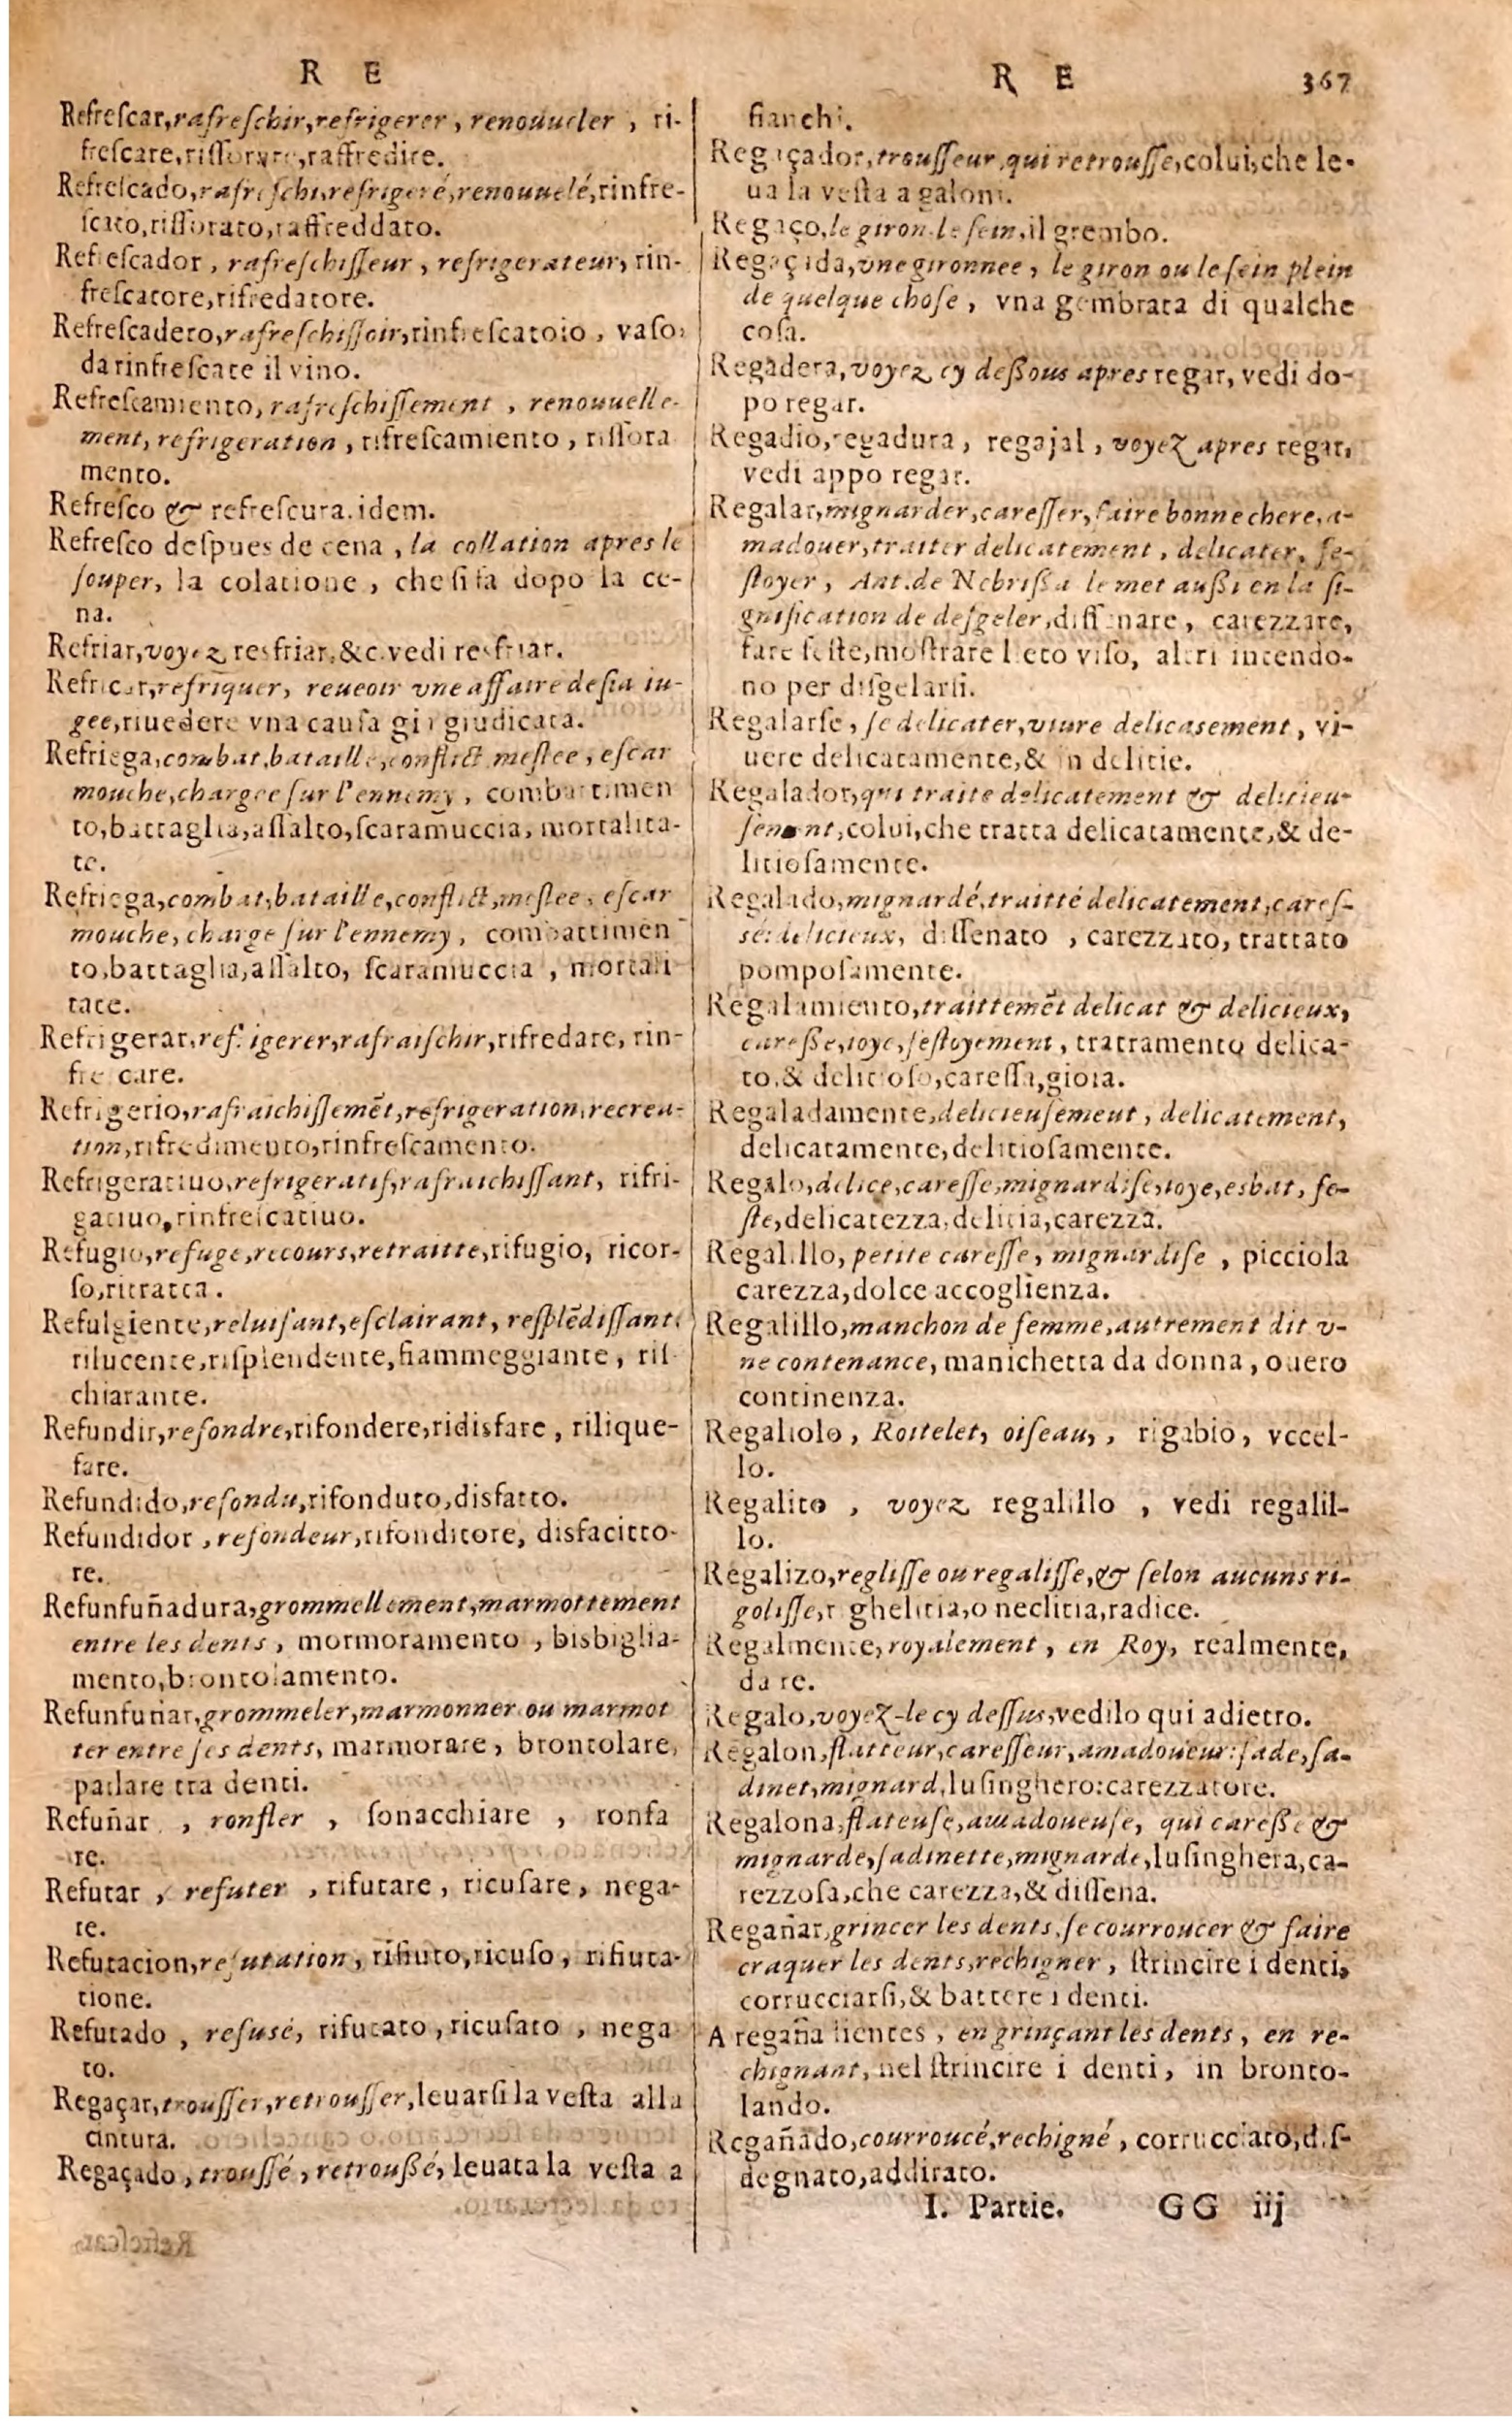 R E
Refreſcar, rafreſchir, refrigerer, renouueler, ri-
freſcare, riſſorare, raffredire.
Refreſcado, rafreſchi, refrigeré, renouuelé, rinfre-
ſcato, riſſorato, raffreddato.
Refreſcador, rafreſchiſſeur, refrigerateur, rin-
freſcatore, rifredatore.
Refreſcadero, rafreſchiſſoir, rinfreſcatoio, vaſo,
da rinfreſcare il vino.
Refreſcamiento, rafreſchiſſement, renouuelle-
ment, refrigeration, rifreſcamiento, riſſora
mento.
Refreſco & refreſcura. idem.
Refreſco deſpues de cena, la collation apres le
ſouper, la colatione, che ſi fa dopo la ce-
na.
Refriar, voyez resfriar, &c. vedi resfriar.
Refricar, refriquer, reueoir vne affaire deſia iu-
gee, riuedere vna cauſa gia giudicata.
Refriega, combat, bataille, conflict, meſlee, eſcar
mouche, chargee ſur l'ennemy, combattimen
to, battaglia, aſſalto, ſcaramuccia, mortalita-
te.
Refriega, combat, bataille, conflict, meſlee, eſcar
mouche, charge ſur l'ennemy, combattimen
to, battaglia, aſſalto, ſcaramuccia, mortali
tate.
Refrigerar, refrigerer, rafraiſchir, rifredare, rin-
freſcare.
Refrigerio, rafraichiſſemẽt, refrigeration, recrea-
tion, rifredimento, rinfreſcamento.
Refrigeratiuo, refrigeratif, rafraichiſſant, rifri-
gatiuo, rinfreſcatiuo.
Refugio, refuge, recours, retraitte, rifugio, ricor-
ſo, ritratta.
Refulgiente, reluiſant, eſclairant, reſplẽdiſſant,
rilucente, riſplendente, fiammeggiante, riſ
chiarante.
Refundir, refondre, rifondere, ridisfare, rilique-
fare.
Refundido, refondu, rifonduto, disfatto.
Refundidor, refondeur, rifonditore, disfacitto-
re.
Refunfuñadura, grommellement, marmottement
entre les dents, mormoramento, bisbiglia-
mento, brontolamento.
Refunfuñar, grommeler, marmonner ou marmot
ter entre ſes dents, marmorare, brontolare,
parlare tra denti.
Refuñar, ronfler, ſonacchiare, ronfa
re.
Refutar, refuter, rifutare, ricuſare, nega-
re.
Refutacion, refutation, rifiuto, ricuſo, rifiuta-
tione.
Refutado, refusé, rifutato, ricuſato, nega
to.
Regaçar, trouſſer, retrouſſer, leuarſi la veſta alla
cintura.
Regaçado, trouſſé, retroußé, leuata la veſta a
R E 367
fianchi.
Regaçador, trouſſeur, qui retrouſſe, colui, che le-
ua la veſta a galoni.
Regaço, le giron, le ſein, il grembo.
Regaçada, vne gironnee, le giron ou le ſein plein
de quelque choſe, vna gembrata di qualche
coſa.
Regadera, voyez cy deßous apres regar, vedi do-
po regar.
Regadio, regadura, regajal, voyez apres regar,
vedi appo regar.
Regalar, mignarder, careſſer, faire bonne chere, a-
madouer, traiter delicatement, delicater, fe-
ſtoyer, Ant. de Nebrißa le met außi en la ſi-
gnification de deſgeler, diſſenare, carezzare,
fare feſte, moſtrare lieto viſo, altri intendo-
no per diſgelarſi.
Regalarſe, ſe delicater, viure delicasement, vi-
uere delicatamente, & in delitie.
Regalador, qui traite delicatement & delicieu-
ſement, colui, che tratta delicatamente, & de-
litioſamente.
Regalado, mignardé, traitté delicatement, careſ-
sé: delicieux, diſſenato, carezzato, trattato
pompoſamente.
Regalamiento, traittemẽt delicat & delicieux,
careße, ioye, feſtoyement, trattamento delica-
to, & delitioſo, careſſa, gioia.
Regaladamente, delicieuſement, delicatement,
delicatamente, delitioſamente.
Regalo, delice, careſſe, mignardiſe, ioye, esbat, fe-
ſte, delicatezza, delitia, carezza.
Regalillo, petite careſſe, mignardiſe, picciola
carezza, dolce accoglienza.
Regalillo, manchon de femme, autrement dit v-
ne contenance, manichetta da donna, ouero
continenza.
Regaliolo, Roitelet, oiſeau,, rigabio, vccel-
lo.
Regalito, voyez regalillo, vedi regalil-
lo.
Regalizo, regliſſe ou regaliſſe, & ſelon aucuns ri-
goliſſe, r ghelitia, o neclitia, radice.
Regalmente, royalement, en Roy, realmente,
da re.
Regalo, voyez-le cy deſſus, vedilo qui adietro.
Regalon, flatteur, careſſeur, amadoueur: fade, ſa-
dinet, mignard, luſinghero: carezzatore.
Regalona, flateuſe, amadoueuſe, qui careße &
mignarde, ſadinette, mignarde, luſinghera, ca-
rezzoſa, che carezza, & diſſena.
Regañar, grincer les dents, ſe courroucer & faire
craquer les dents, rechigner, ſtrincire i denti,
corrucciarſi, & battere i denti.
A regaña dientes, en grinçant les dents, en re-
chignant, nel ſtrincire i denti, in bronto-
lando.
Regañado, courroucé, rechigné, corrucciato, diſ-
degnato, addirato.
I. Partie. GG iij